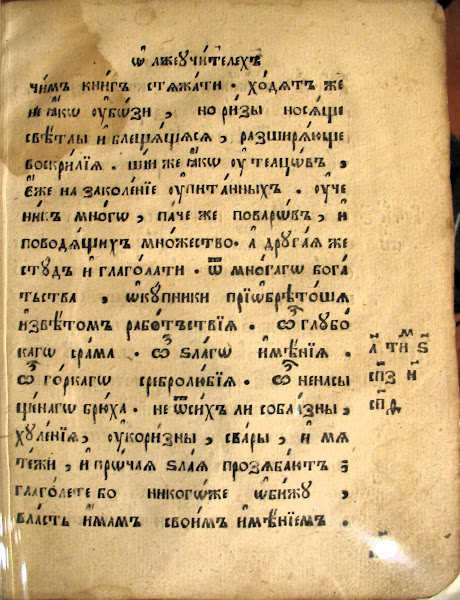 Ѡ лжеꙋчи́телехъ
чи́мъ кни́гъ стѧжа́ти · хо́дѧтъ же
не ꙗ҆́кѡ ᲂу҆бѡ́зи , но ри́зы носѧ́ще
свѣ́тлы и҆ блеща́щаѧсѧ , разширѧ́юще
воскри́лїѧ · ши́и же ꙗ҆́кѡ ᲂу҆ телцѡ́въ ,
є҆́же на заколе́нїе ᲂу҆пита́нныхъ · ᲂу҆че
ни́къ мно́гѡ , па́че же поварѡ́въ , и҆
поводѧ́щихъ мно́жество · а҆ дрꙋга́ѧ же
стꙋ́дъ и҆ глаго́лати · ѿ мно́гагѡ бога́
тьства , ѡ҆кꙋпники прїѡбрѣто́ша
и҆звѣ́томъ рабо́тьствїѧ · ѿ глꙋбо́
кагѡ сра́ма · ѿ ѕла́гѡ и҆мѣ́нїѧ ·
ѿ го́ркагѡ сребролю́бїѧ · ѿ ненасы́
ще́нагѡ брю́ха · не ѿси́хъ ли собла́зны ,
хꙋле́нїѧ , ᲂу҆кори́зны , сва́ры , и҆ мѧ
те́жи , и҆ прѡ́чаѧ ѕла́ѧ прозѧба́ютъ ;
глаго́лете бо никого́же ѡ҆би́жꙋ ,
вла́сть и҆́мамъ свои́мъ и҆мѣ́нїемъ ·
м
а҃ ти ѕ҃
сп҃з и҆
сп҃д